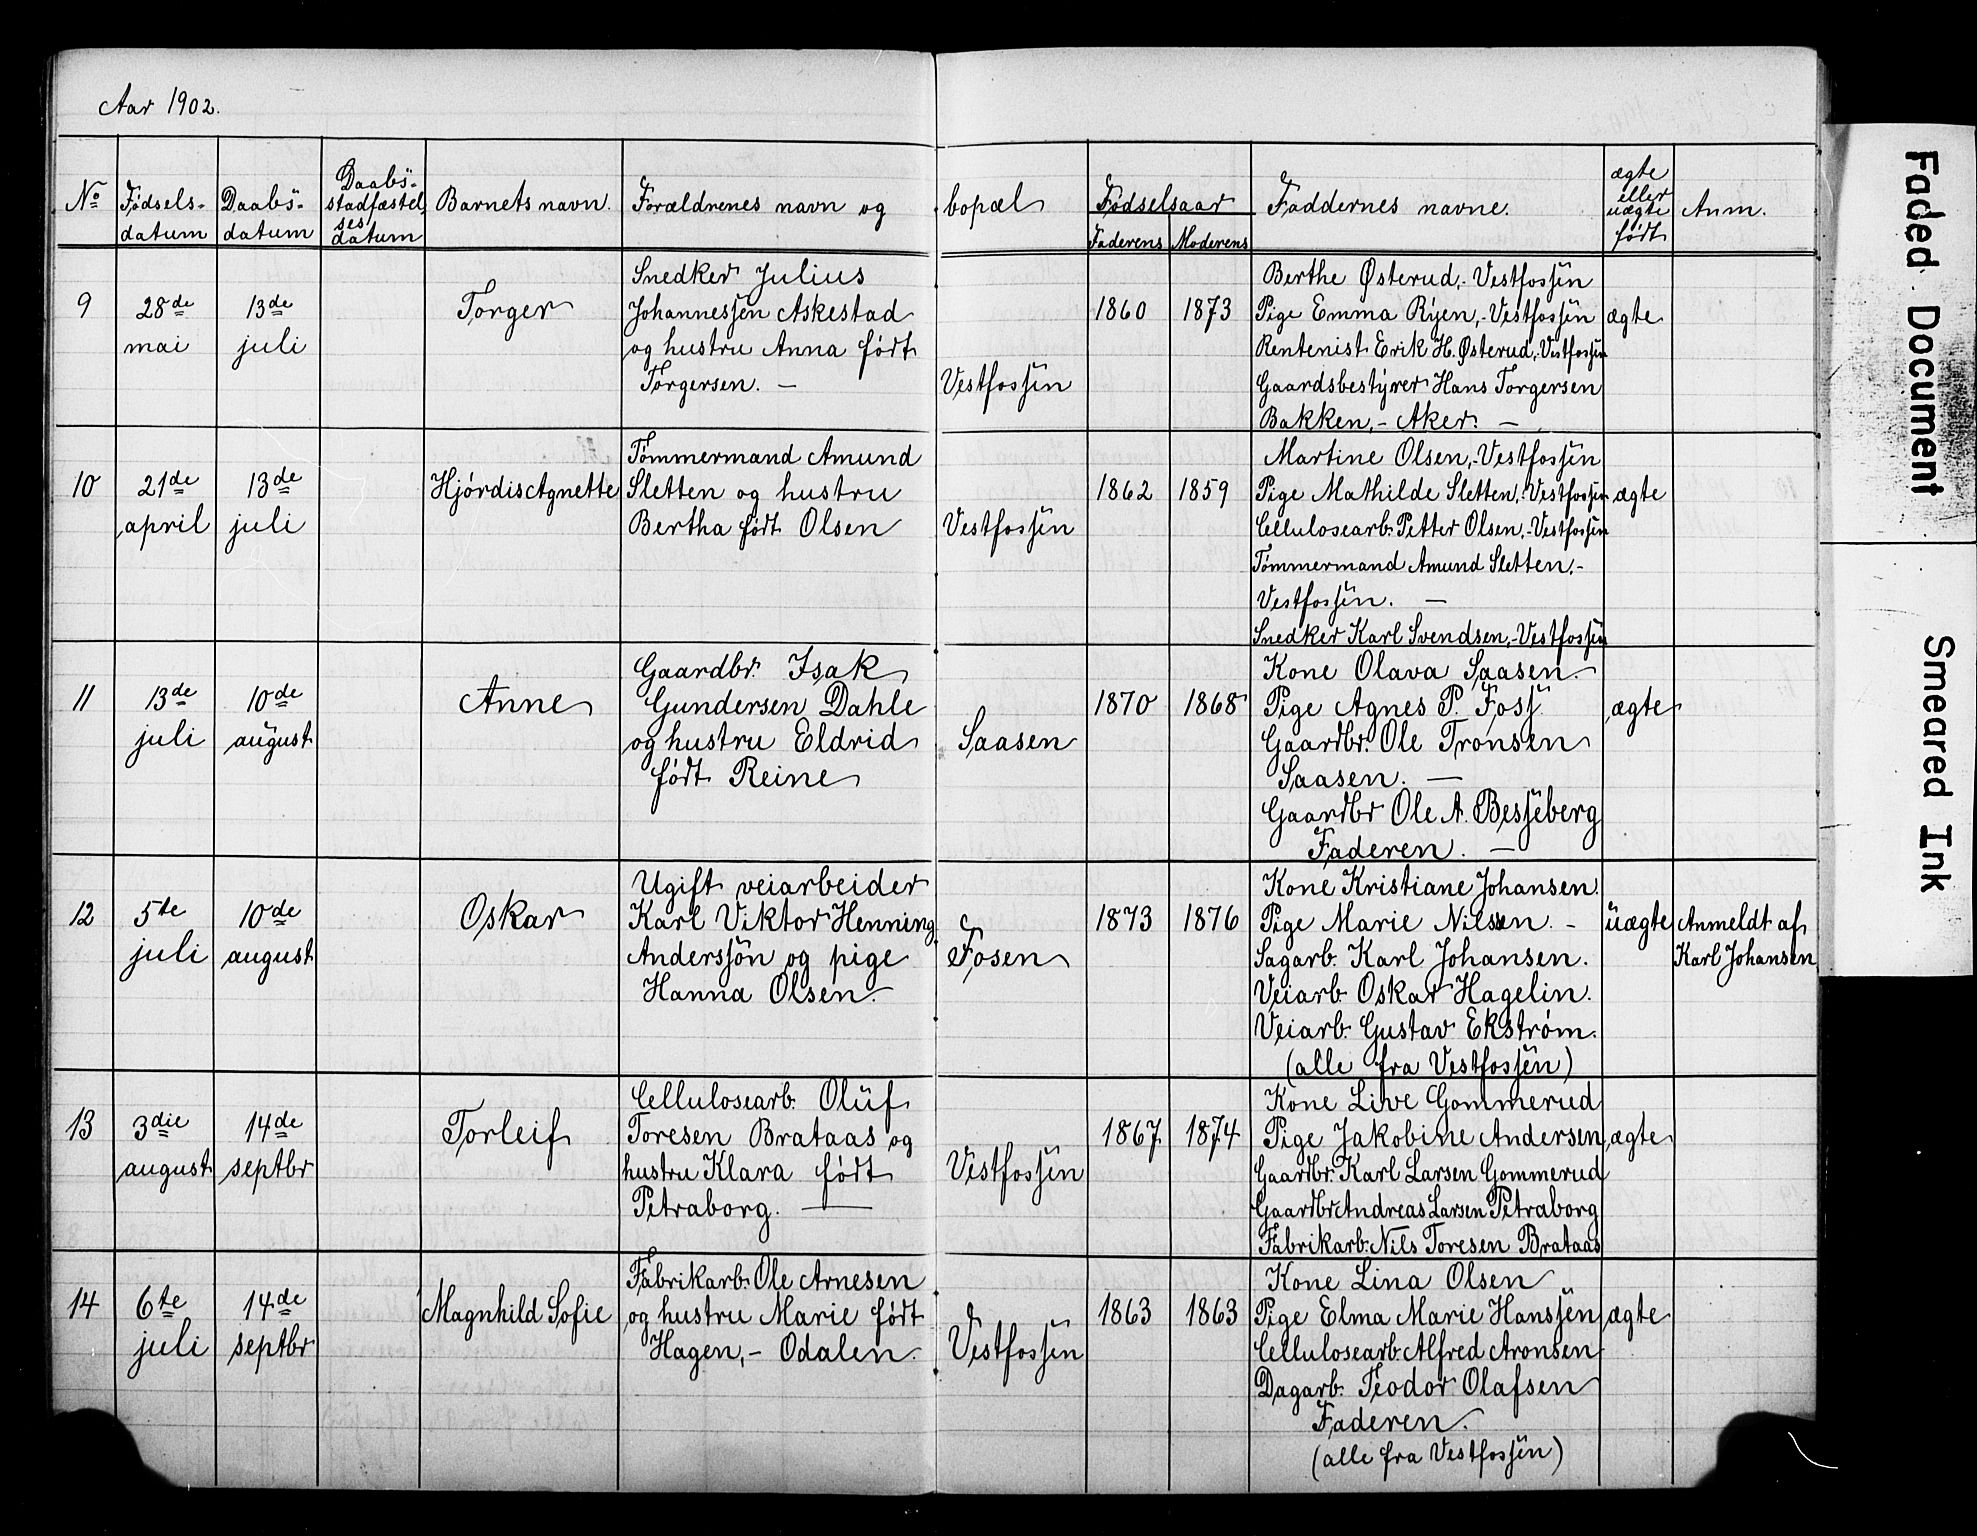 Aar 1902.
No Fødsels- datum Daabs- datum Daabs- stadfæstel- ses datum Barnets navn. Forældrenes navn og bopæl Fødselsaar Faderens Moderens Faddernes navne. ægte eller uægte født Anm.
9 28de mai 13de juli Torger
Snedker Julius
Johannessen Askestad
og hustru Anna født
Torgersen. —
Vestfossen
1860 1873
Berthe Østerud,- Vestfossen
Pige Emma Ryen,- Vestfossen
Rentenist Erik H. Østerud,- Vestfossen
Gaardsbestyrer Hans Torgersen
Bakken,- Aker. —
ægte
10 21de april 13de juli Hjørdis Agnette
Tømmermand Amund
Sletten og hustru
Bertha født Olsen
Vestfossen
1862 1859
Martine Olsen,- Vestfossen
Pige Mathilde Sletten,- Vestfossen
Cellulosearb. Petter Olsen,- Vestfossen
Tømmermand Amund Sletten,-
Vestfossen. —
Snedker Karl Svendsen,- Vestfossen
ægte
11 13de juli 10de august Anne
Gaardbr. Isak
Gundersen Dahle
og hustru Eldrid
født Reine
Saasen
1870 1868
Kone Olava Saasen.
Pige Agnes P. Foss.
Gaardbr. Ole Tronsen
Saasen. —
Gaardbr Ole A. Besseberg
Faderen. —
ægte
12 5te juli 10de august Oskar
Ugift veiarbeider
Karl Viktor Henning
Anderssøn og pige
Hanna Olsen.
Fosen
1873 1876
Kone Kristiane Johansen.
Pige Marie Nilsen. -
Sagarb. Karl Johansen.
Veiarb. Oskar Hagelin.
Veiarb. Gustav Ekstrøm.
(alle fra Vestfossen)
uægte
Anmeldt af
Karl Johansen
13 3die august 14de septbr Torleif
Cellulosearb. Oluf
Toresen Brataas og
hustru Klara født
Petraborg. —
Vestfossen
1867 1874
Kone Live Gommerud
Pige Jakobine Andersen
Gaardbr. Karl Larsen Gommerud
Gaardbr Andreas Larsen Petraborg
Fabrikarb. Nils Toresen Brataas
ægte
14 6te juli 14de septbr Magnhild Sofie
Fabrikarb. Ole Arnesen
og hustru Marie født
Hagen,- Odalen.
Vestfossen
1863 1863
Kone Lina Olsen
Pige Elma Marie Hanssen
Cellulosearb. Alfred Aronsen
Dagarb. Teodor Olafsen
Faderen.
(alle fra Vestfossen)
ægte
Faded Document
Smeared Ink